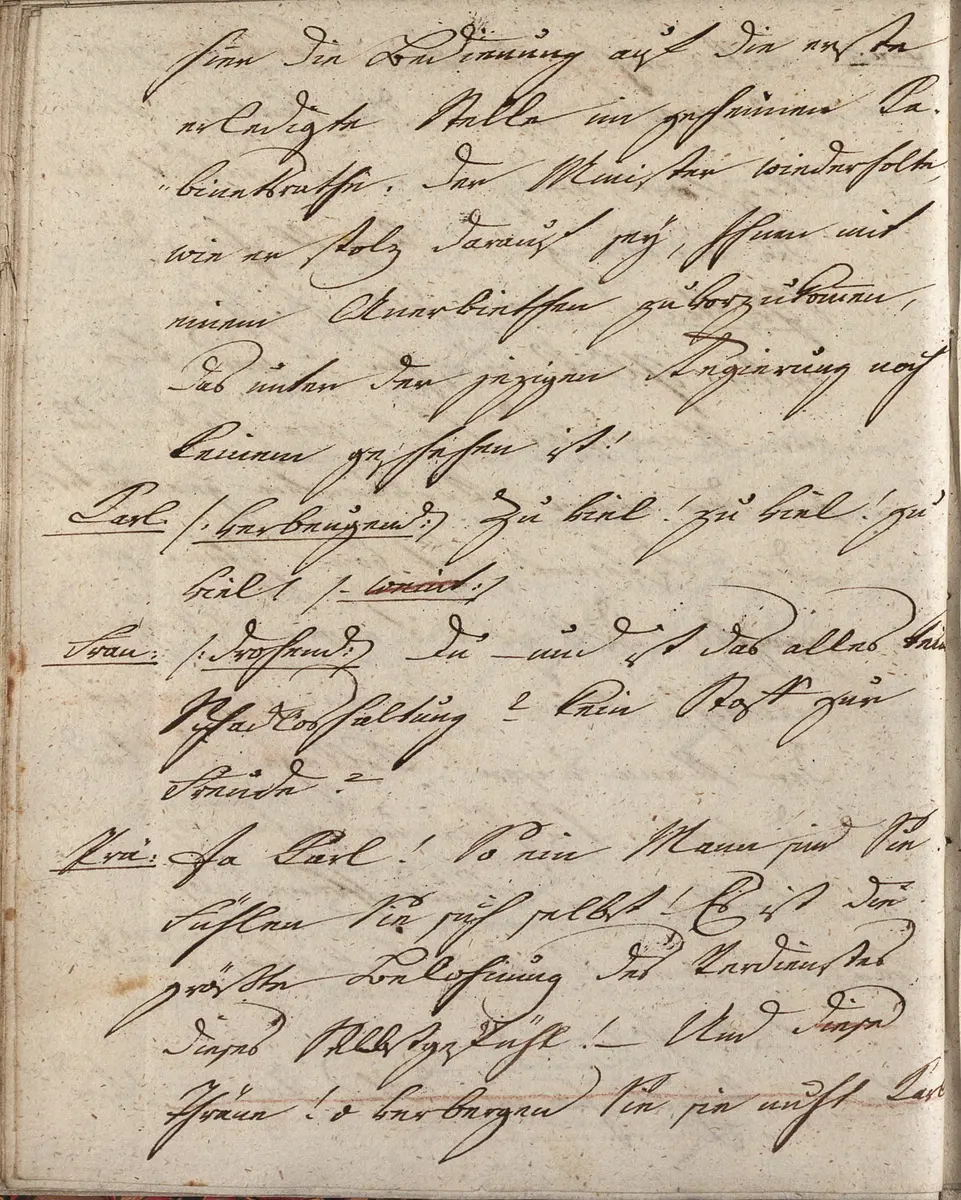 hier die Bedienung auf die erste
erledigte Stelle im geheimen Ka-
"binetsrathe. Der Minister wiederholte,
wie er stolz darauf sey, Ihnen mit
einem Anerbiethen zuvorzukom̄en,
das unter der jezigen Regierung noch
keinem geschehen ist!
Karl. /: verbeugend :/ Zu viel! zu viel! zu
viel! /- weint :/
Frau: /: drohend :/ Du – und ist das alles kein
Schadloshaltung? kein Stoff zur
Freude?
Prä: Ja Karl! So ein Mann sind Sie.
Fühlen Sie sich selbst! Es ist die
größte Belohnung des Verdienstes
dieses Selbstgefühl! – Und diese
Thräne! o verbergen Sie sie nicht Karl